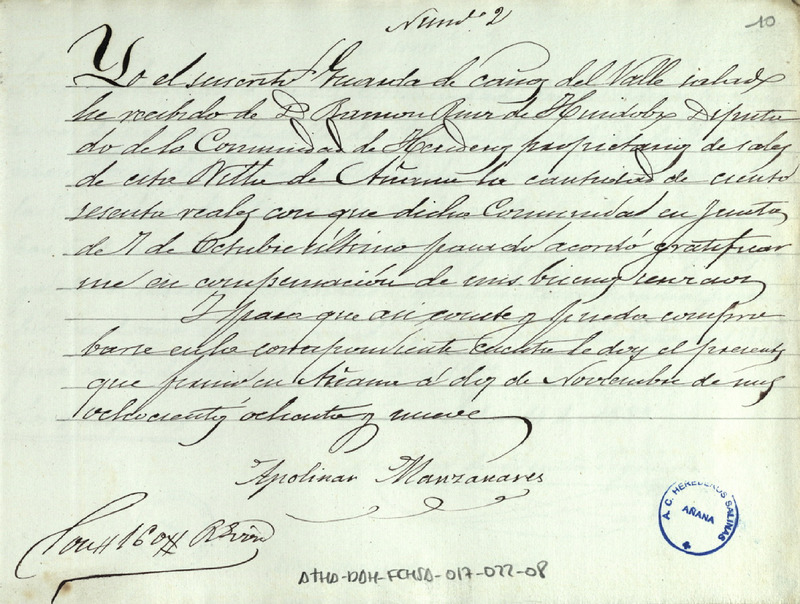 Numº 2
10
Yo el suscrito Guarda de caños del Valle salado
he recibido de D. Ramon Ruiz de Huidobro Diputa
do de la Comunidad de Herederos propietarios de sales
de esta Villa de Añana la cantidad de ciento
sesenta reales con que dicha Comunidad en Junta
de 7 de Octubre último pasado acordó gratificar
me en compensación de mis buenos servicios
Y para que asi conste y pueda compro
barse en la correspondiente cuenta le doy el presente
que firmo en Añana á dos de Noviembre de mil
ochocientos ochenta y nueve
Apolinar Manzanares
Son # 160 # R. Vellón
A. C. HEREDEROS SALINAS
AÑANA
ATHA-DAH-FCHSA-017-022-08